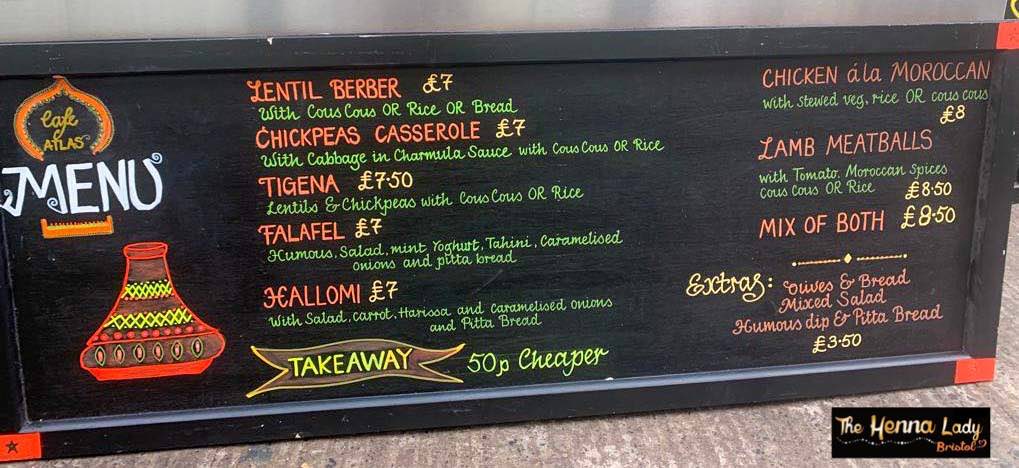 Cafe
ATLAS
MENU
LENTIL BERBER £7
With Cous Cous OR Rice OR Bread
CHICKPEAS CASSEROLE £7
With Cabbage in Charmula Sauce with Cous Cous OR Rice
TIGENA £7.50
Lentils & Chickpeas with Cous Cous OR Rice
FALAFEL £7
Humous, Salad, mint Yoghurt, Tahini, Caramelised
onions and pitta bread
HALLOMI £7
With Salad, carrot, Harissa and Caramelised Onions
and Pitta Bread
TAKEAWAY 50p Cheaper
CHICKEN á la MOROCCAN
with stewed veg, rice OR cous cous
£8
LAMB MEATBALLS
with Tomato, Moroccan Spices
Cous Cous OR Rice £8.50
MIX OF BOTH £8.50
Extras: Olives & Bread
Mixed Salad
Humous dip & Pitta Bread
£3.50
The Henna Lady
Bristol